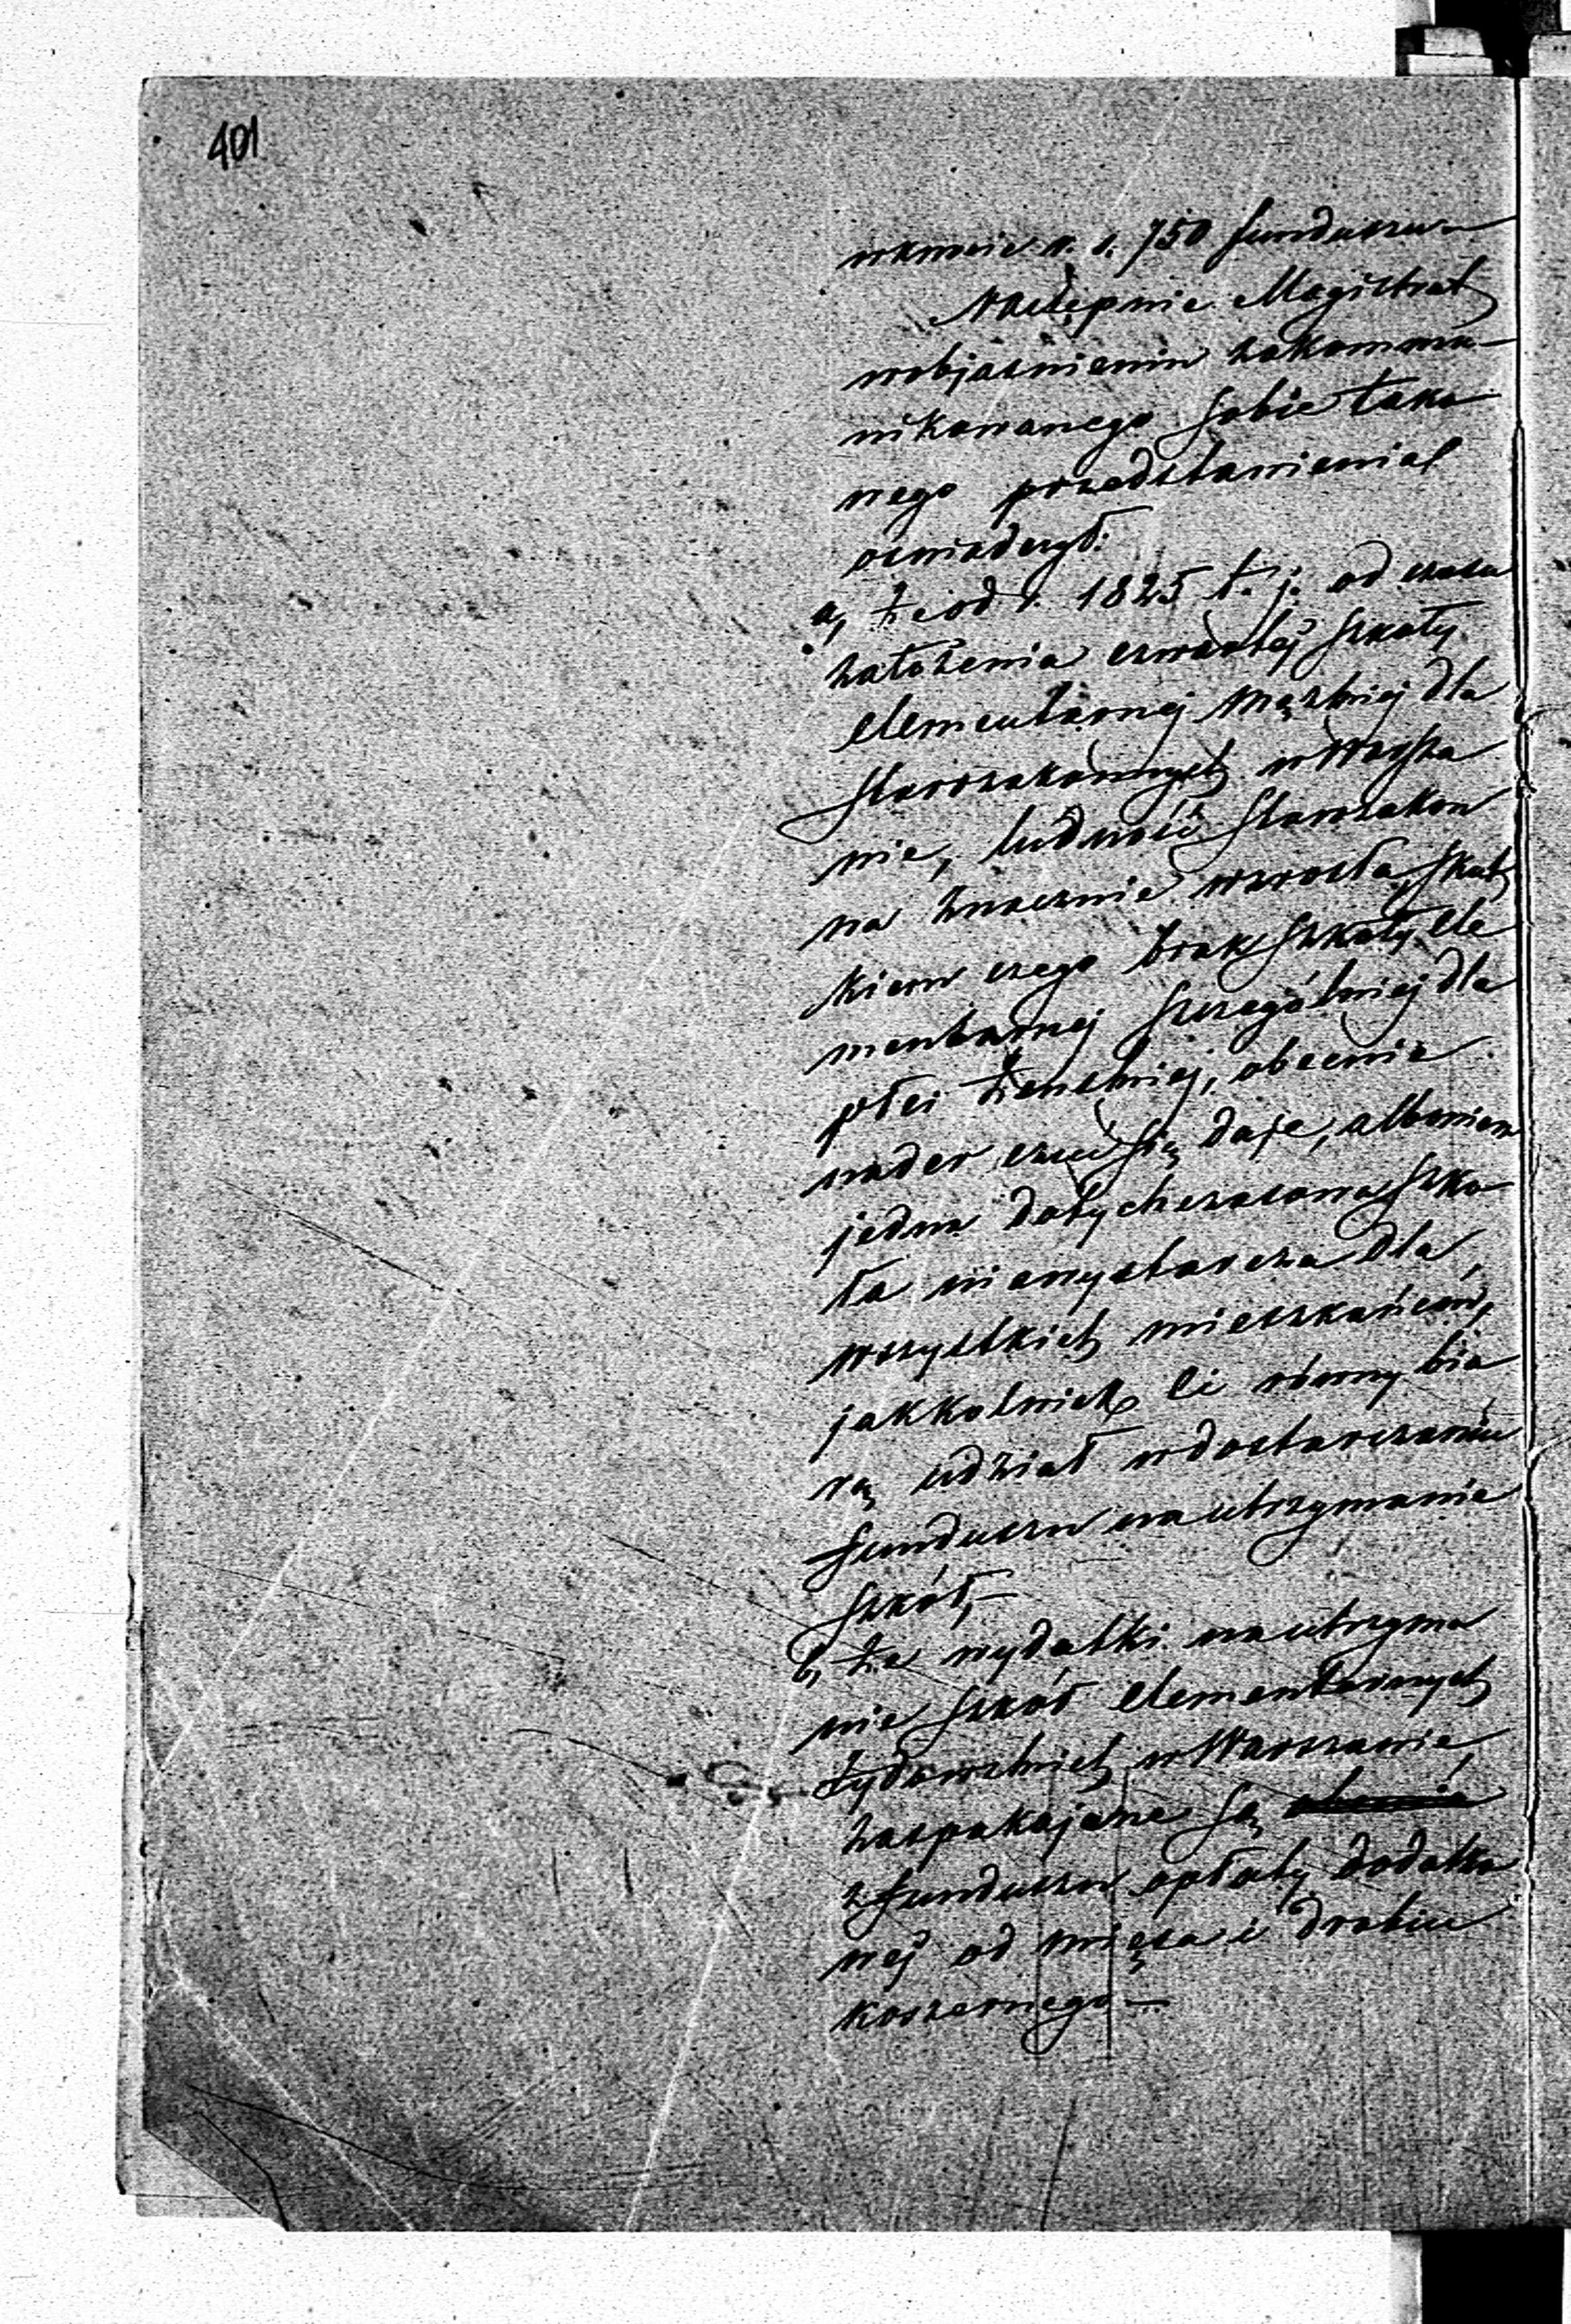 401
wkwocie r. s. 750 funduszu
Następnie Magistrat
wobjaśnieniu zakommu-
nikowanego sobie tako
wego przedstawienia
oswiadczył:
a, że od r. 1825 t. j. od czasu
założenia czwartej szkoły
elementarnej męzkiej dla
starozakonnych w Warsza
wie, ludność starozakon
na znacznie wzrosła, skut
kiem czego brak szkoły ele
mentarnej szczególniej dla
płci żeńskiej, obecnie
nader czuć się daje, albowiem
jedna dotychczasowa szko
ła niewystarcza dla
wszystkich mieszkańców,
jakkolwiek ci równy bio
rą udział wdostarczaniu
funduszu na utrzymanie
szkół,—
b, że wydatki na utrzyma
nie szkół elementarnych
żydowskich w Warszawie,
zaspakajane są obecnie
z funduszu opłaty dodatko
wej od mięsa i drobiu
koszernego—